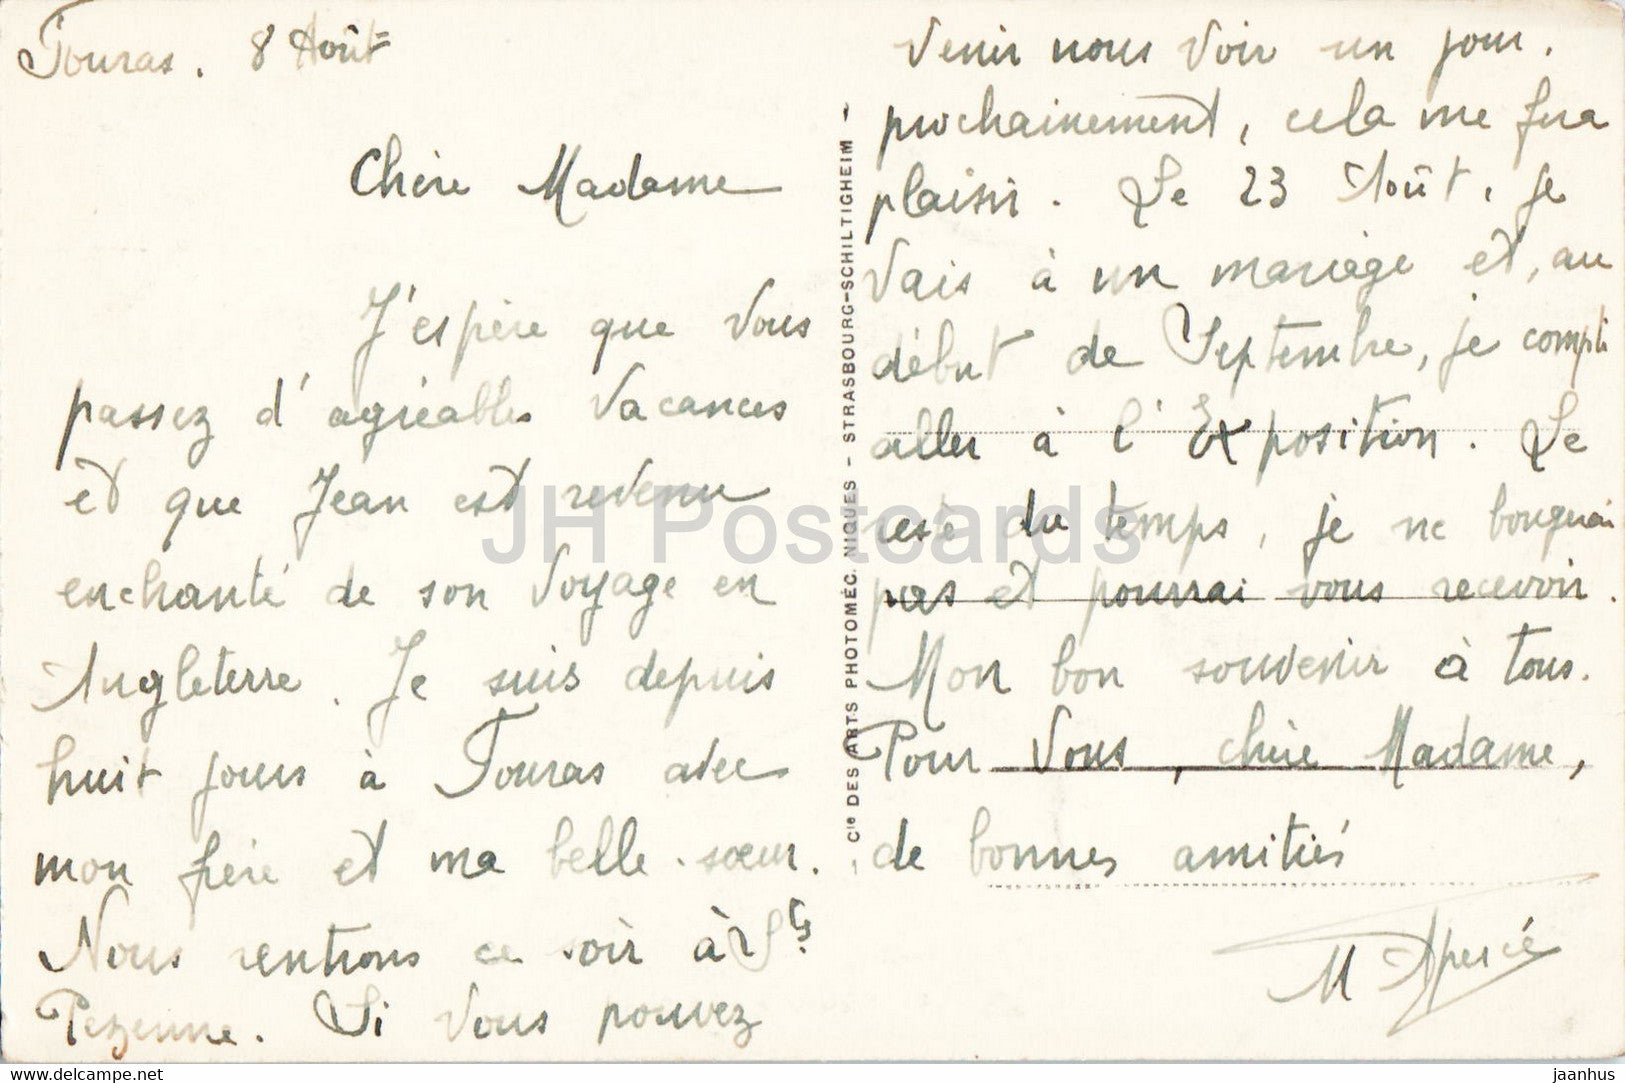 Fouras. 8 Août
Chère Madame
J'espère que vous
passez d'agréables vacances
et que Jean est revenu
enchanté de son voyage en
Angleterre. Je suis depuis
huit jours à Fouras avec
mon frère et ma belle-sœur.
Nous rentrons ce soir à Ste
Pezenne. Si vous pouvez
venir nous voir un jour.
prochainement, cela me fera
plaisir. Le 23 Août, je
vais à un mariage et, au
début de Septembre, je compte
aller à l'Exposition. Le
reste du temps, je ne bougerai
pas et pourrai vous recevoir.
Mon bon souvenir à tous.
Pour vous, chère Madame,
de bonnes amitiés
M
Cie DES ARTS PHOTOMÉCANIQUES - STRASBOURG-SCHILTIGHEIM
JH Postcards
https://www.delcampe.net
jaanhus